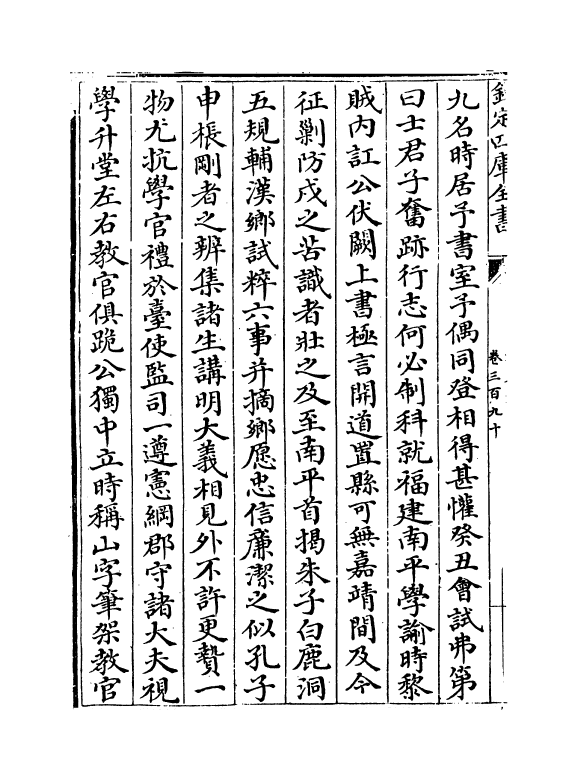 欽定四庫全書
卷三百九十
九名時居予書室予偶同登相得甚懽癸丑會試弗第
曰士君子奮跡行志何必制科就福建南平學諭時黎
賊內訌公伏闕上書極言開道置縣可無嘉靖間及今
征剿防戍之苦識者壯之及至南平首揭朱子白鹿洞
五規輔漢鄉試粹六事并摘鄉愿忠信廉潔之似孔子
申棖剛者之辨集諸生講明大義相見外不許更贄一
物尤抗學官禮於臺使監司一遵憲綱郡守諸大夫視
學升堂左右教官俱跪公獨中立時稱山字筆架教官